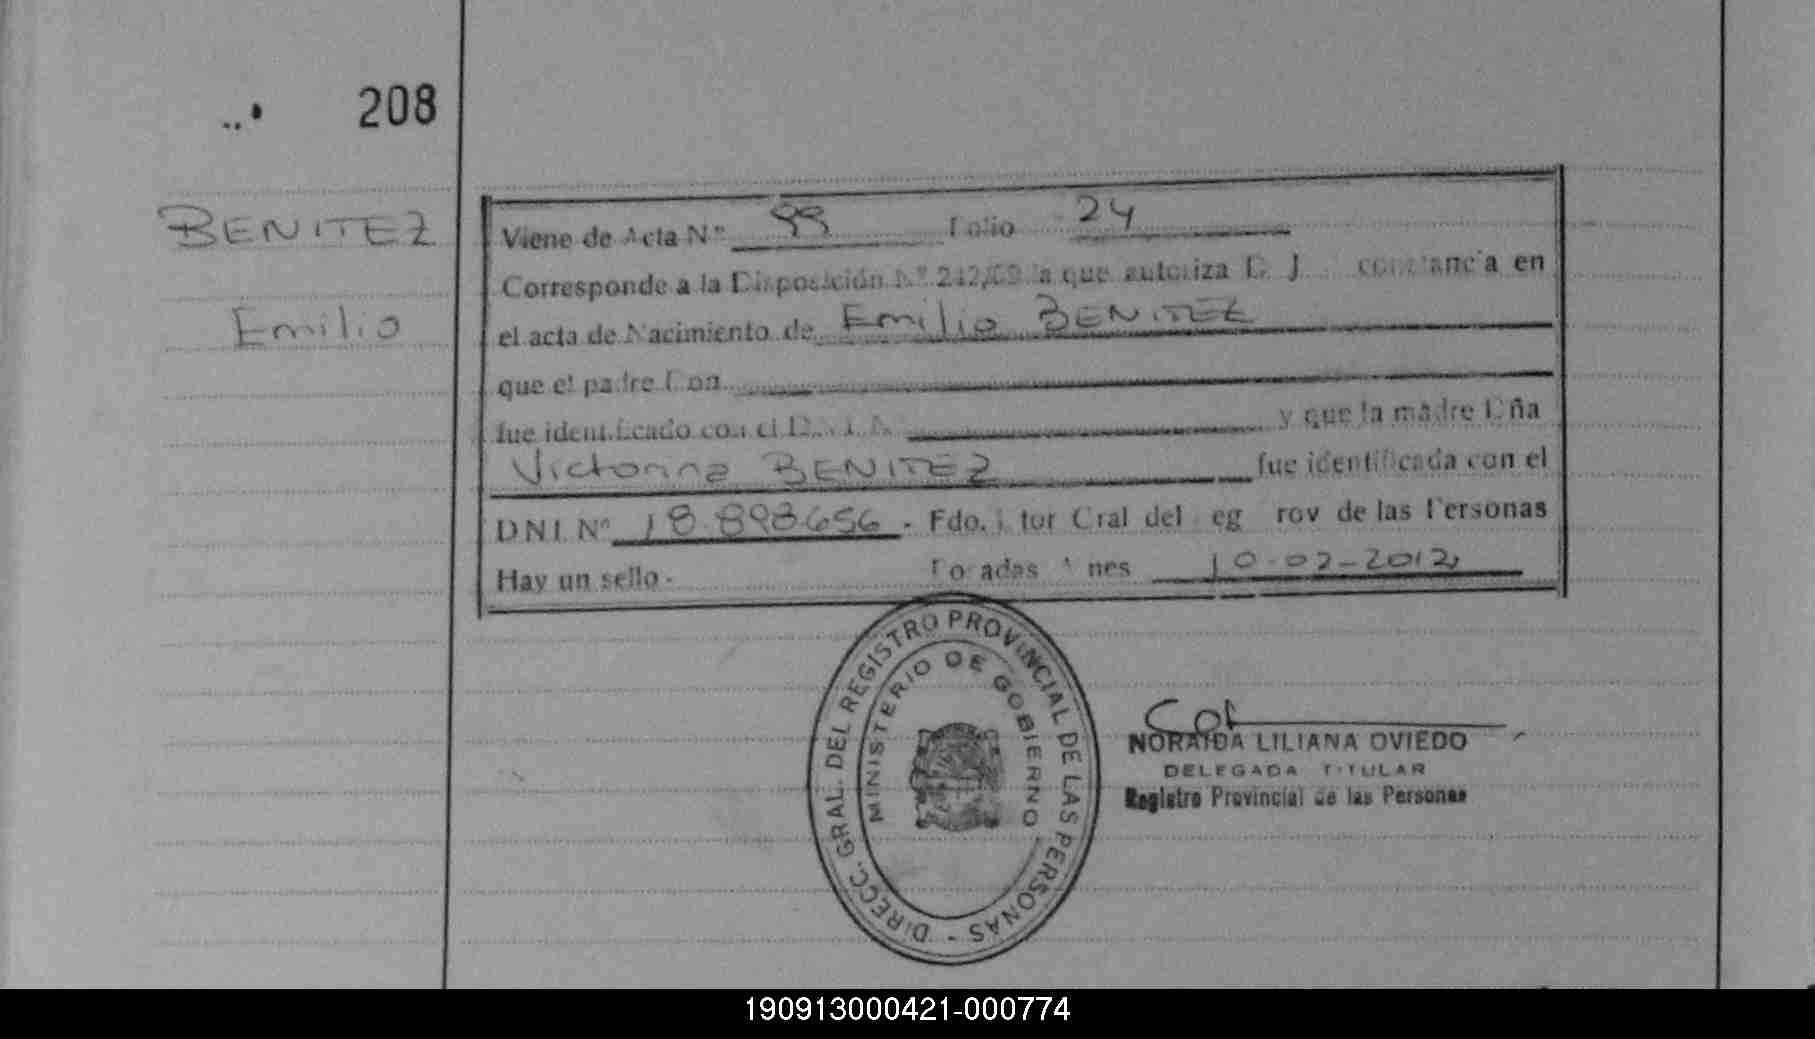 208
BENITEZ
Emilio
Viene de Acta Nº 99 Folio 24
Corresponde a la Disposición Nº 242/09 la que autoriza D J constancia en
el acta de Nacimiento de Emilio BENITEZ
que el padre Don
fue identificado con el D.N.I. Nº y que la madre Dña
Victorina BENITEZ fue identificada con el
DNI Nº 18.898.656. Fdo. de las Personas
Hay un sello - Posadas Mnes 10-02-2012
DIRECC. GRAL. DEL REGISTRO PROVINCIAL DE LAS PERSONAS -
MINISTERIO DE GOBIERNO
NORAIDA LILIANA OVIEDO
DELEGADA TITULAR
Registro Provincial de las Personas
190913000421-000774